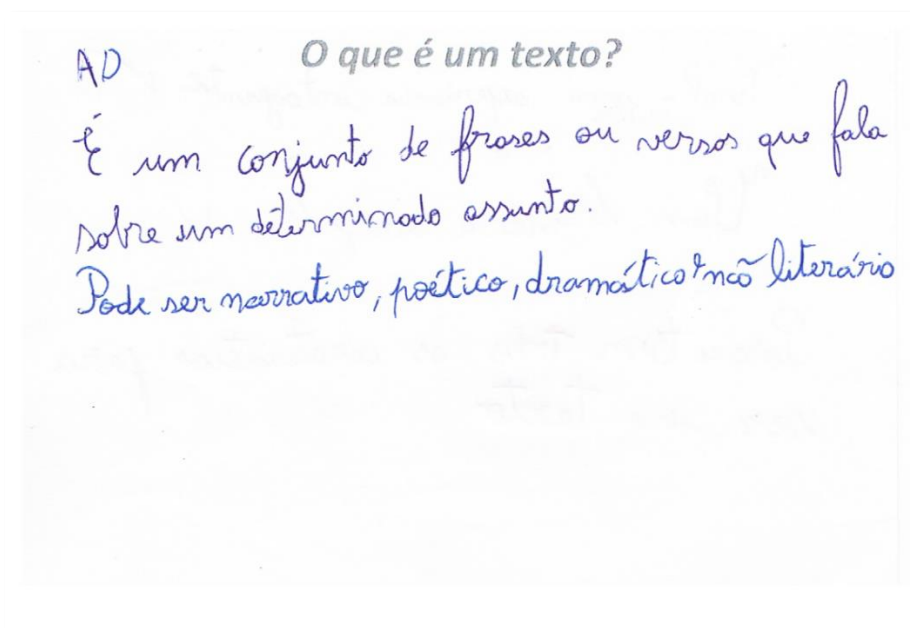 AD
O que é um texto?
É um conjunto de frases ou versos que fala
sobre um determinado assunto.
Pode ser narrativo, poético, dramático e não literário